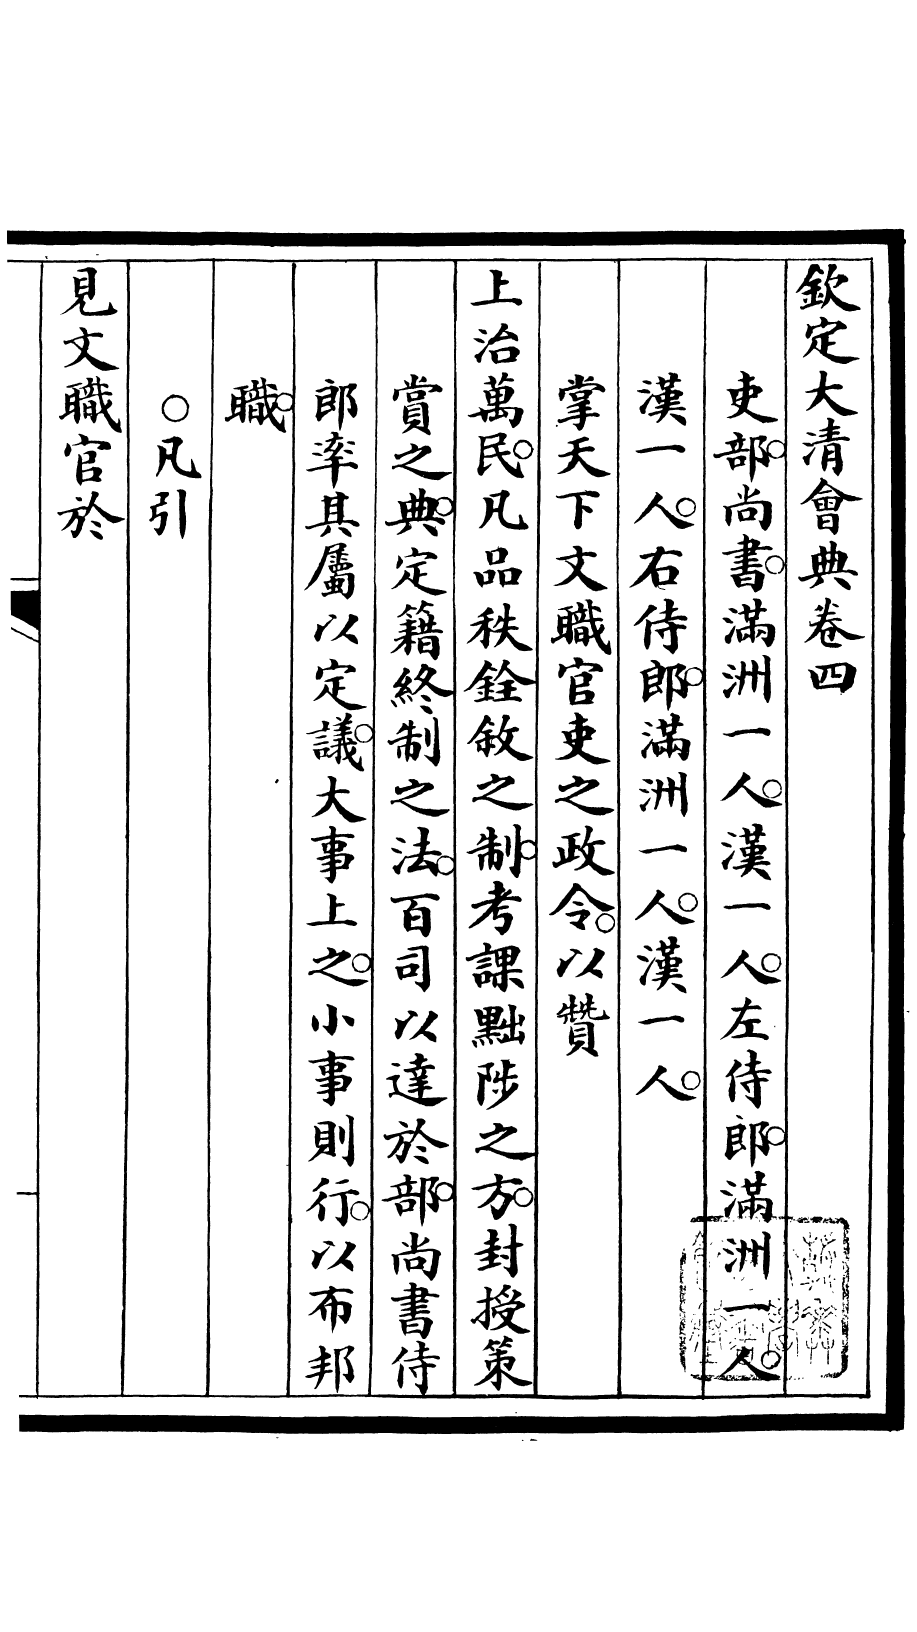 欽定大清會典卷四
吏部。尚書。滿洲一人。漢一人。左侍郎。滿洲一人。
漢一人。右侍郎。滿洲一人。漢一人。
掌天下文職官吏之政令。以贊
上治萬民。凡品秩銓敘之制。考課黜陟之方。封授策
賞之典。定籍終制之法。百司以達於部。尚書侍
郎率其屬以定議。大事上之。小事則行。以布邦
職。
○凡引
見文職官於